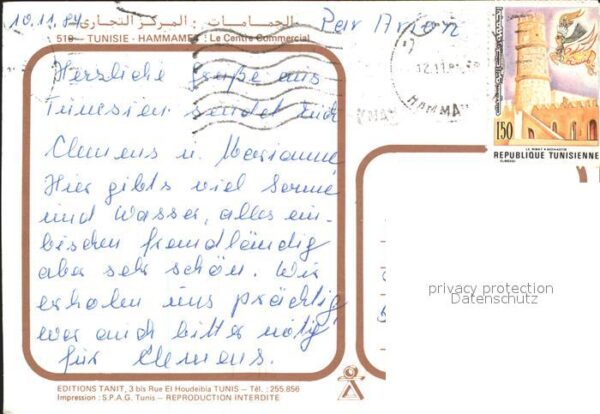 10.11.84
الحمامات : المركز التجاري
Par Avion
510 - TUNISIE - HAMMAMET : Le Centre Commercial
12.11.84
HAMMAM
150
LE RIBAT
REPUBLIQUE TUNISIENNE
Herzliche Grüße aus
Tunesien sendet Euch
Clemens u. Marianne
Hier gibts viel Sonne
und Wasser, alles ein
bischen fremdländig
aber sehr schön. Wir
erholen uns prächtig
war auch bitter nötig
für Clemens.
privacy protection
Datenschutz
EDITIONS TANIT, 3 bis Rue El Houdeibia TUNIS - Tél. : 255.856
Impression : S.P.A.G. Tunis - REPRODUCTION INTERDITE